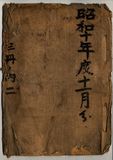 昭和十年度十一月分
三冊ノ内二